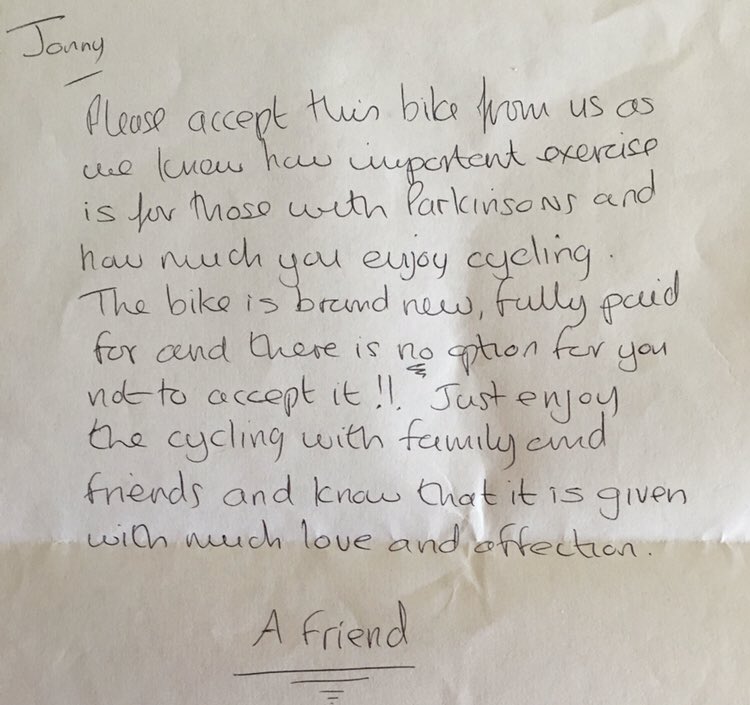 Jonny
Please accept this bike from us as
we know how important exercise
is for those with Parkinsons and
how much you enjoy cycling.
The bike is brand new, fully paid
for and there is no option for you
not to accept it!!. Just enjoy
the cycling with family and
friends and know that it is given
with much love and affection.
A friend